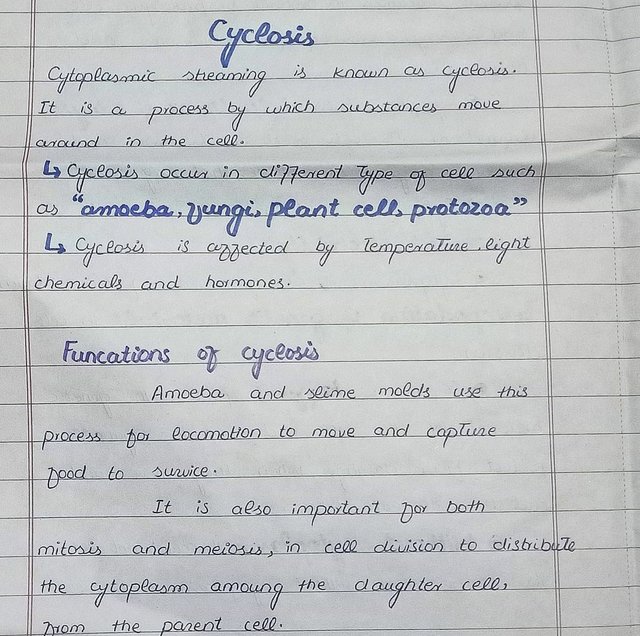 Cyclosis
Cytoplasmic streaming is known as cyclosis.
It is a process by which substances move
around in the cell.
↳ Cyclosis occur in different type of cell such
as "amoeba, fungi, plant cell, protozoa"
↳ Cyclosis is affected by Temperature, light
chemicals and hormones.
Funcations of cyclosis
Amoeba and slime molds use this
process for locomotion to move and capture
food to survice.
It is also important for both
mitosis and meiosis, in cell division to distribute
the cytoplasm amoung the daughter cell,
from the parent cell.